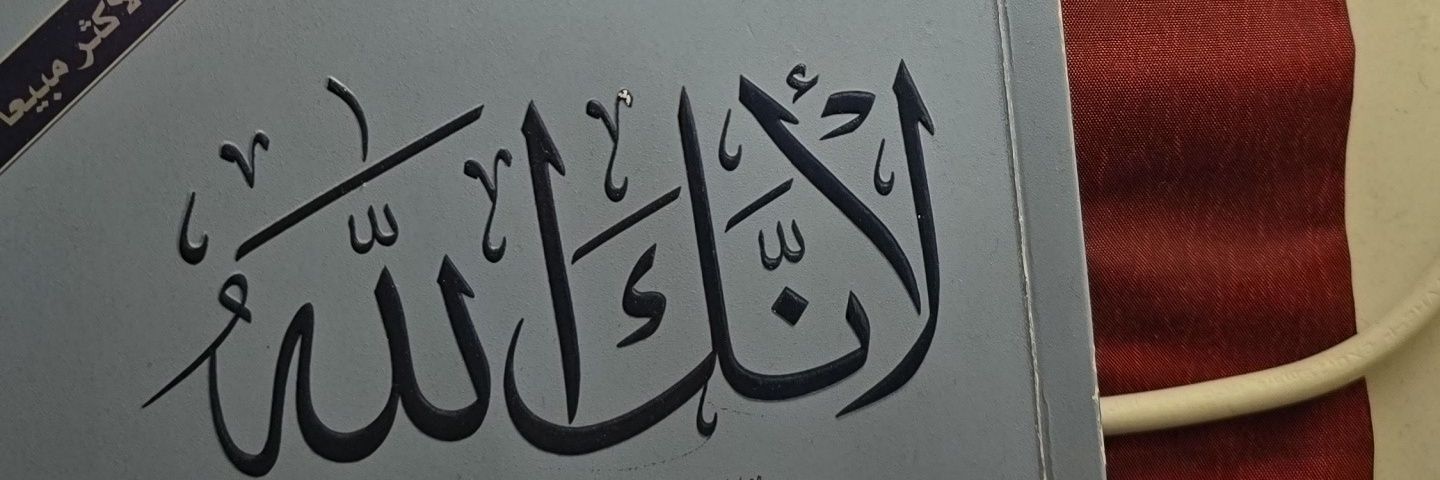 الأكثر مبيعا
لأَنَّكَ اللهُ